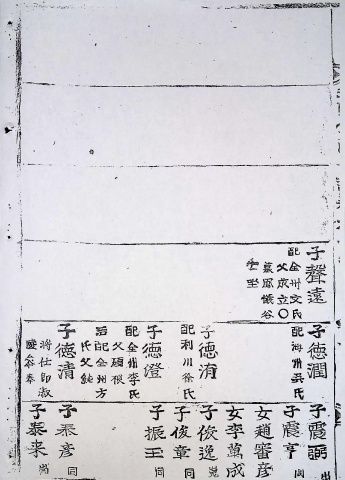 子聲遠
配金州文氏
父成立〇
墓鳳儀谷
壬坐
子德潤
配海州吳氏
子德消
配利川徐氏
子德澄
配金州李氏
父碩根
后配金州方
氏父
子德清
將仕郎
子震弼
子震亨
女趙審彦
女李萬成
子俊逸
子俊章 同
子振玉 同
子泰彦 同
子泰来